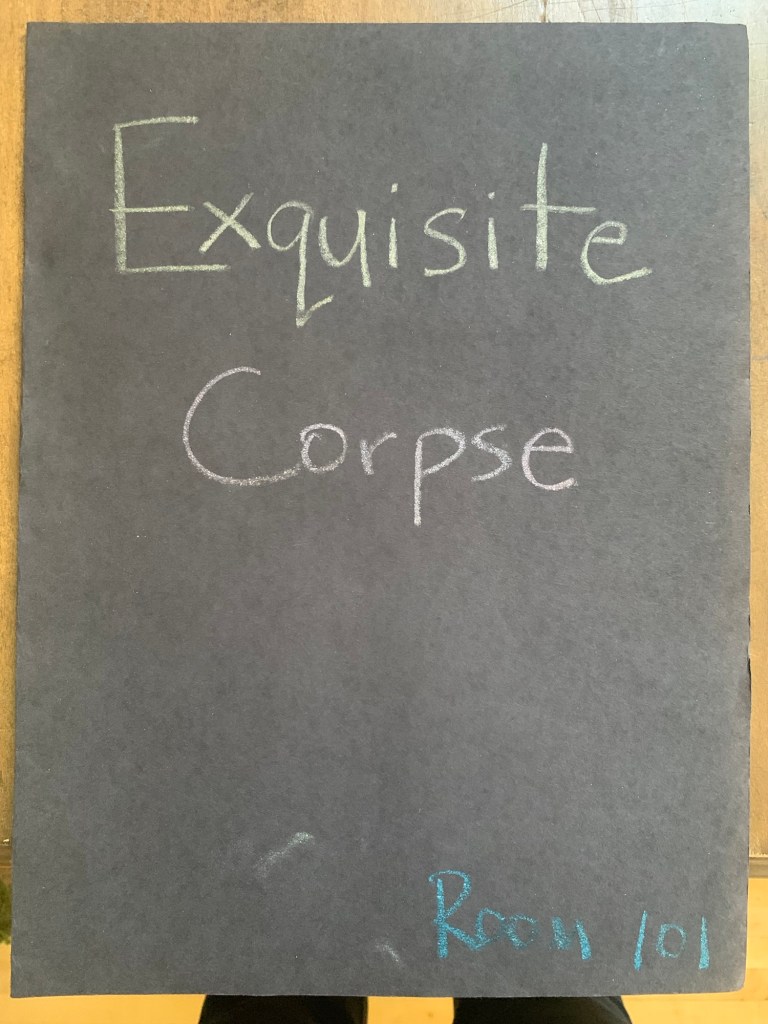 Exquisite
Corpse
Room 101